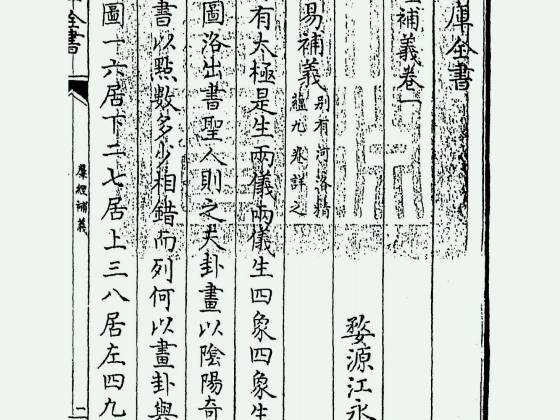 庫全書
補義卷一
婺源江永
易補義
別有河洛精
蘊九卷詳之
有太極是生兩儀兩儀生四象四象生
圖洛出書聖人則之夫卦畫以陰陽奇
書以點數多少相錯而列何以畫卦與
圖一六居下二七居上三八居左四九
全書
羣經補義
二